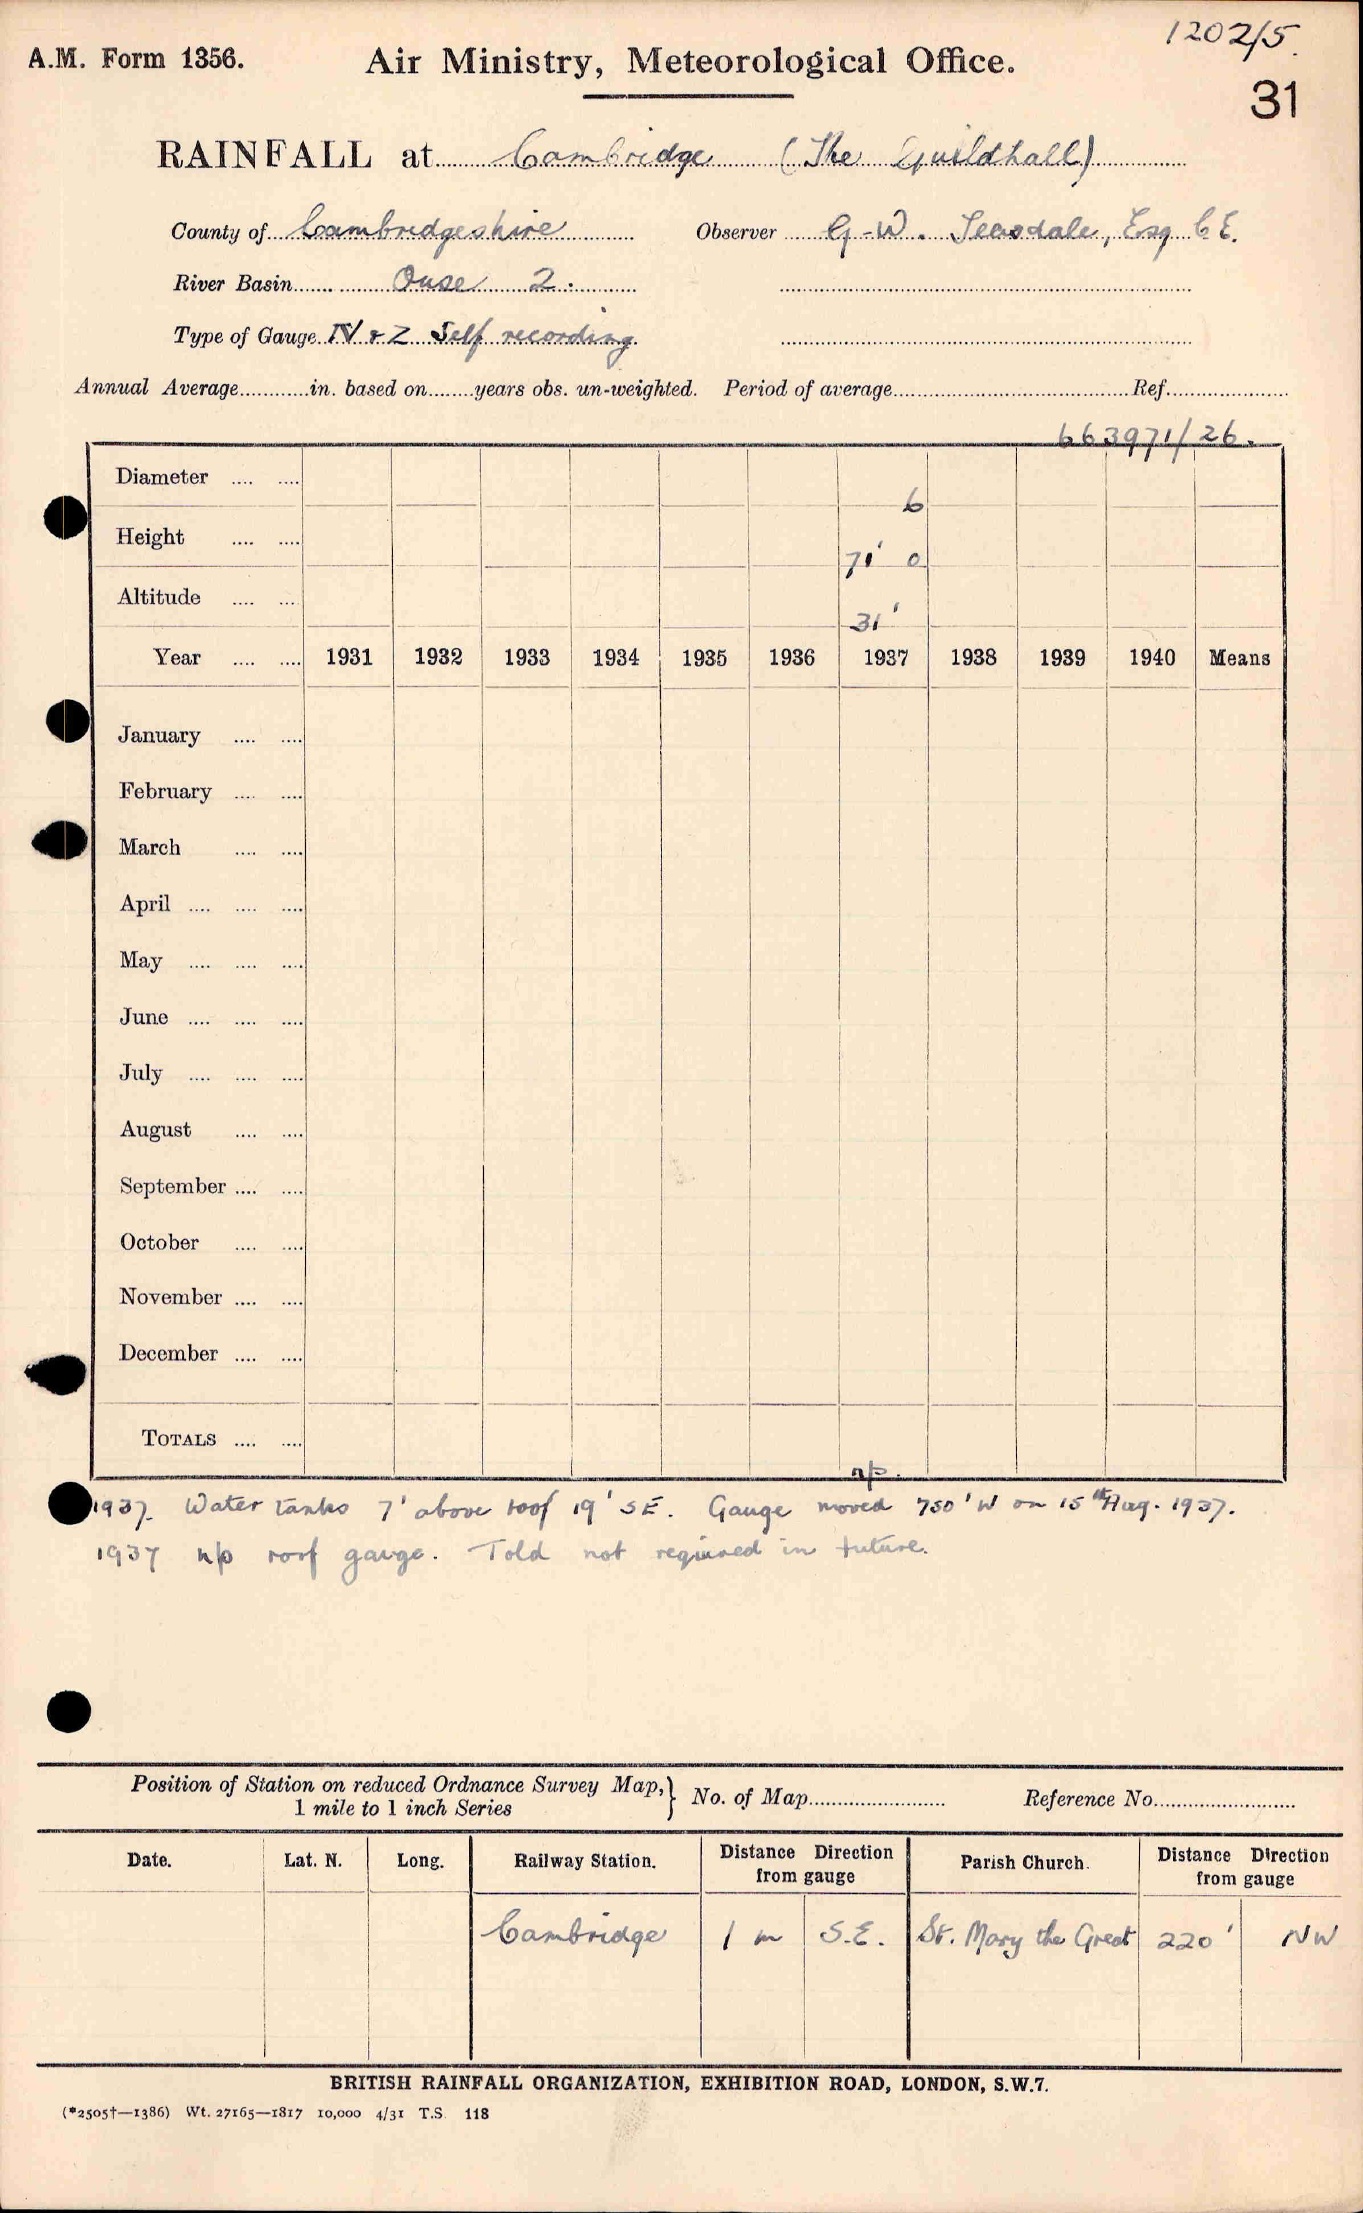 1202/5.
A.M. Form 1356. Air Ministry, Meteorological Office.
31
RAINFALL at Cambridge (The Guildhall)
County of Cambridgeshire Observer G.W. Teasdale, Esq C.E.
River Basin Ouse 2.
Type of Gauge N & Z Self recording
Annual Average in. based on years obs. un-weighted. Period of average Ref.
663971/26.
Diameter 6
Height 71' 0
Altitude 31'
Year 1931 1932 1933 1934 1935 1936 1937 1938 1939 1940 Means
January
February
March
April
May
June
July
August
September
October
November
December
TOTALS
n/p.
1937. Water tanks 7' above roof 19' SE. Gauge moved 750' W on 15th Aug. 1937.
1937 n/p roof gauge. Told not required in future.
Position of Station on reduced Ordnance Survey Map,} No. of Map Reference No.
1 mile to 1 inch Series
Date. Lat. N. Long. Railway Station. Distance Direction from gauge Parish Church. Distance Direction from gauge
Cambridge 1 m S.E. St. Mary the Great 220' NW
BRITISH RAINFALL ORGANIZATION, EXHIBITION ROAD, LONDON, S.W.7.
(*2505†—1386) Wt. 27165—1817 10,000 4/31 T.S. 118